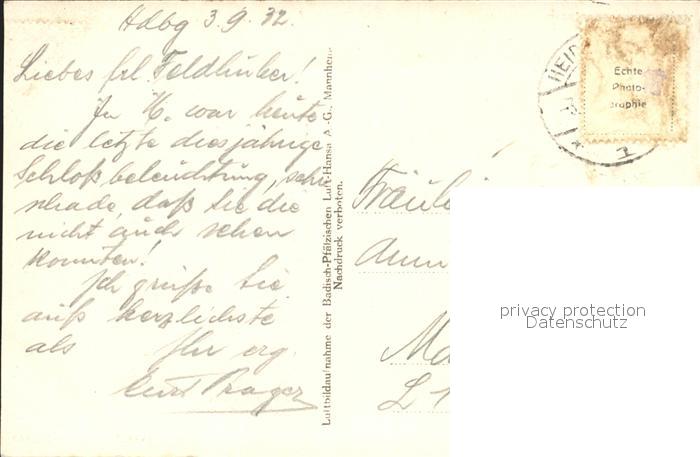 Hdbg 3.9.32.
Liebes frl. Feldhuber!
In H. war heute
die letzte diesjährige
Schloßbeleuchtung, sehr
schade, daß Sie die
nicht auch sehen
konnten!
Ich grüße Sie
aufs herzlichste
als Ihr erg.
Curt Prager
Luftbildaufnahme der Badisch-Pfälzischen Luft-Hansa A.-G., Mannheim
Nachdruck verboten.
HEID
Echte
Photo-
graphie
Fräulei
Ann
Ma
L 1
privacy protection
Datenschutz